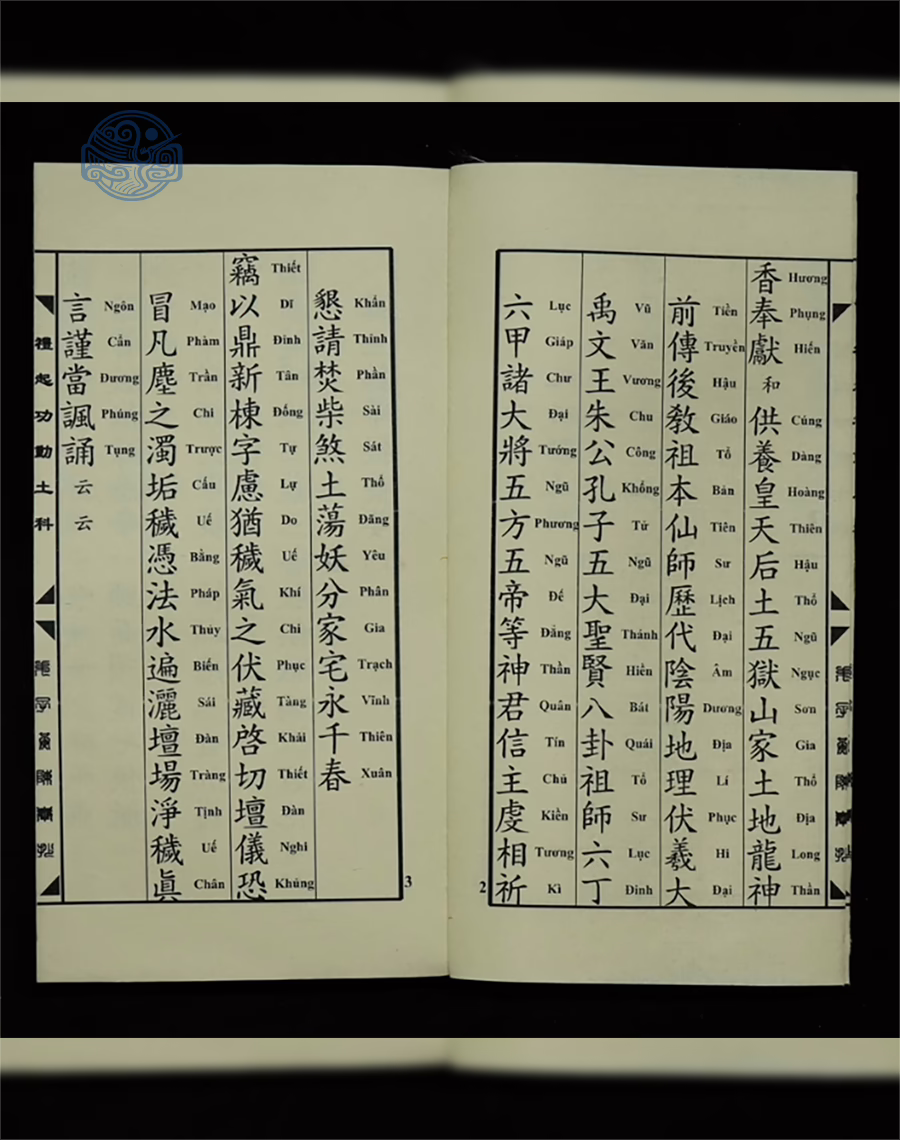 香奉獻和供養皇天后土五獄山家土地龍神
Hương Phụng Hiến Cúng Dàng Hoàng Thiên Hậu Thổ Ngũ Ngục Sơn Gia Thổ Địa Long Thần
前傳後教祖本仙師歷代陰陽地理伏羲大
Tiền Truyền Hậu Giáo Tổ Bản Tiên Sư Lịch Đại Âm Dương Địa Lí Phục Hi Đại
禹文王朱公孔子五大聖賢八卦祖師六丁
Vũ Văn Vương Chu Công Khổng Tử Ngũ Đại Thánh Hiền Bát Quái Tổ Sư Lục Đinh
六甲諸大將五方五帝等神君信主虔相祈
Lục Giáp Chư Đại Tướng Ngũ Phương Ngũ Đế Đẳng Thần Quân Tín Chủ Kiền Tương Kì
2
懇請焚柴煞土蕩妖分家宅永千春
Khẩn Thỉnh Phần Sài Sát Thổ Đãng Yêu Phân Gia Trạch Vĩnh Thiên Xuân
竊以鼎新棟字慮猶穢氣之伏藏啓切壇儀恐
Thiết Dĩ Đỉnh Tân Đống Tự Lự Do Uế Khí Chi Phục Tàng Khải Thiết Đàn Nghi Khủng
冒凡塵之濁垢穢憑法水遍灑壇場淨穢眞
Mạo Phàm Trần Chi Trược Cấu Uế Bằng Pháp Thủy Biến Sái Đàn Tràng Tịnh Uế Chân
言謹當諷誦云云
Ngôn Cẩn Đương Phúng Tụng
禮起功動土科
3